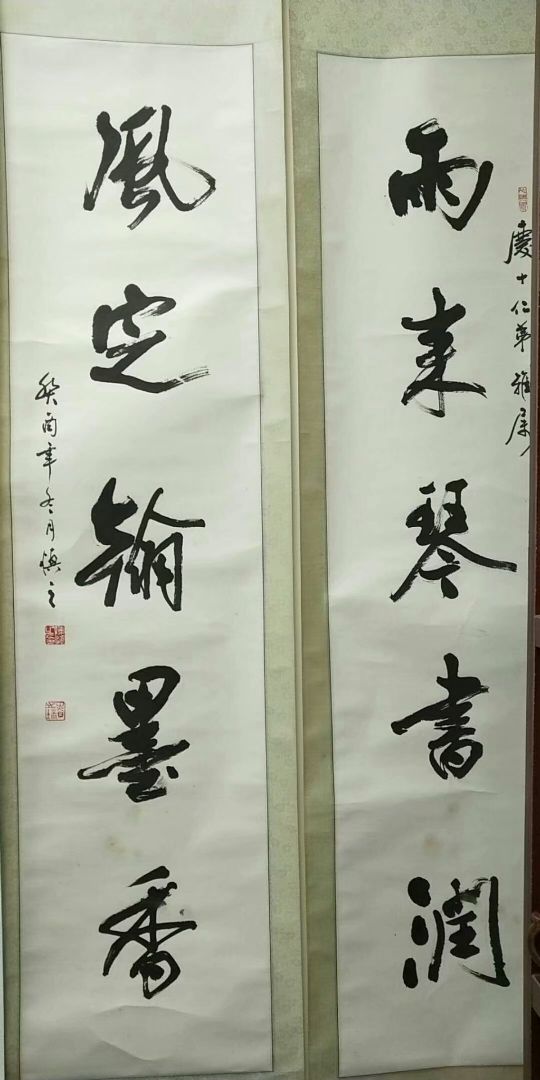 慶十仁弟雅屬
雨来琴書潤
風定翰墨香
癸酉年冬月慎之